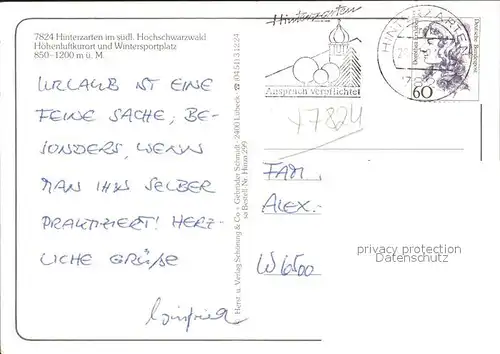 7824 Hinterzarten im südl. Hochschwarzwald
Höhenluftkurort und Wintersportplatz
850-1200 m ü. M.
URLAUB IST EINE
FEINE SACHE, BE-
SONDERS, WENN
MAN IHN SELBER
PRAKTIZIERT! HERZ-
LICHE GRÜßE
Winfried
Herst. u. Verlag Schöning & Co + Gebrüder Schmidt · 2400 Lübeck
Bestell-Nr. Hinw 299
Hinterzarten
Anspruch verpflichtet
HINTERZARTEN
Deutsche Bundespost
60
+7824
FAM.
ALEX.
W 6500
privacy protection
Datenschutz